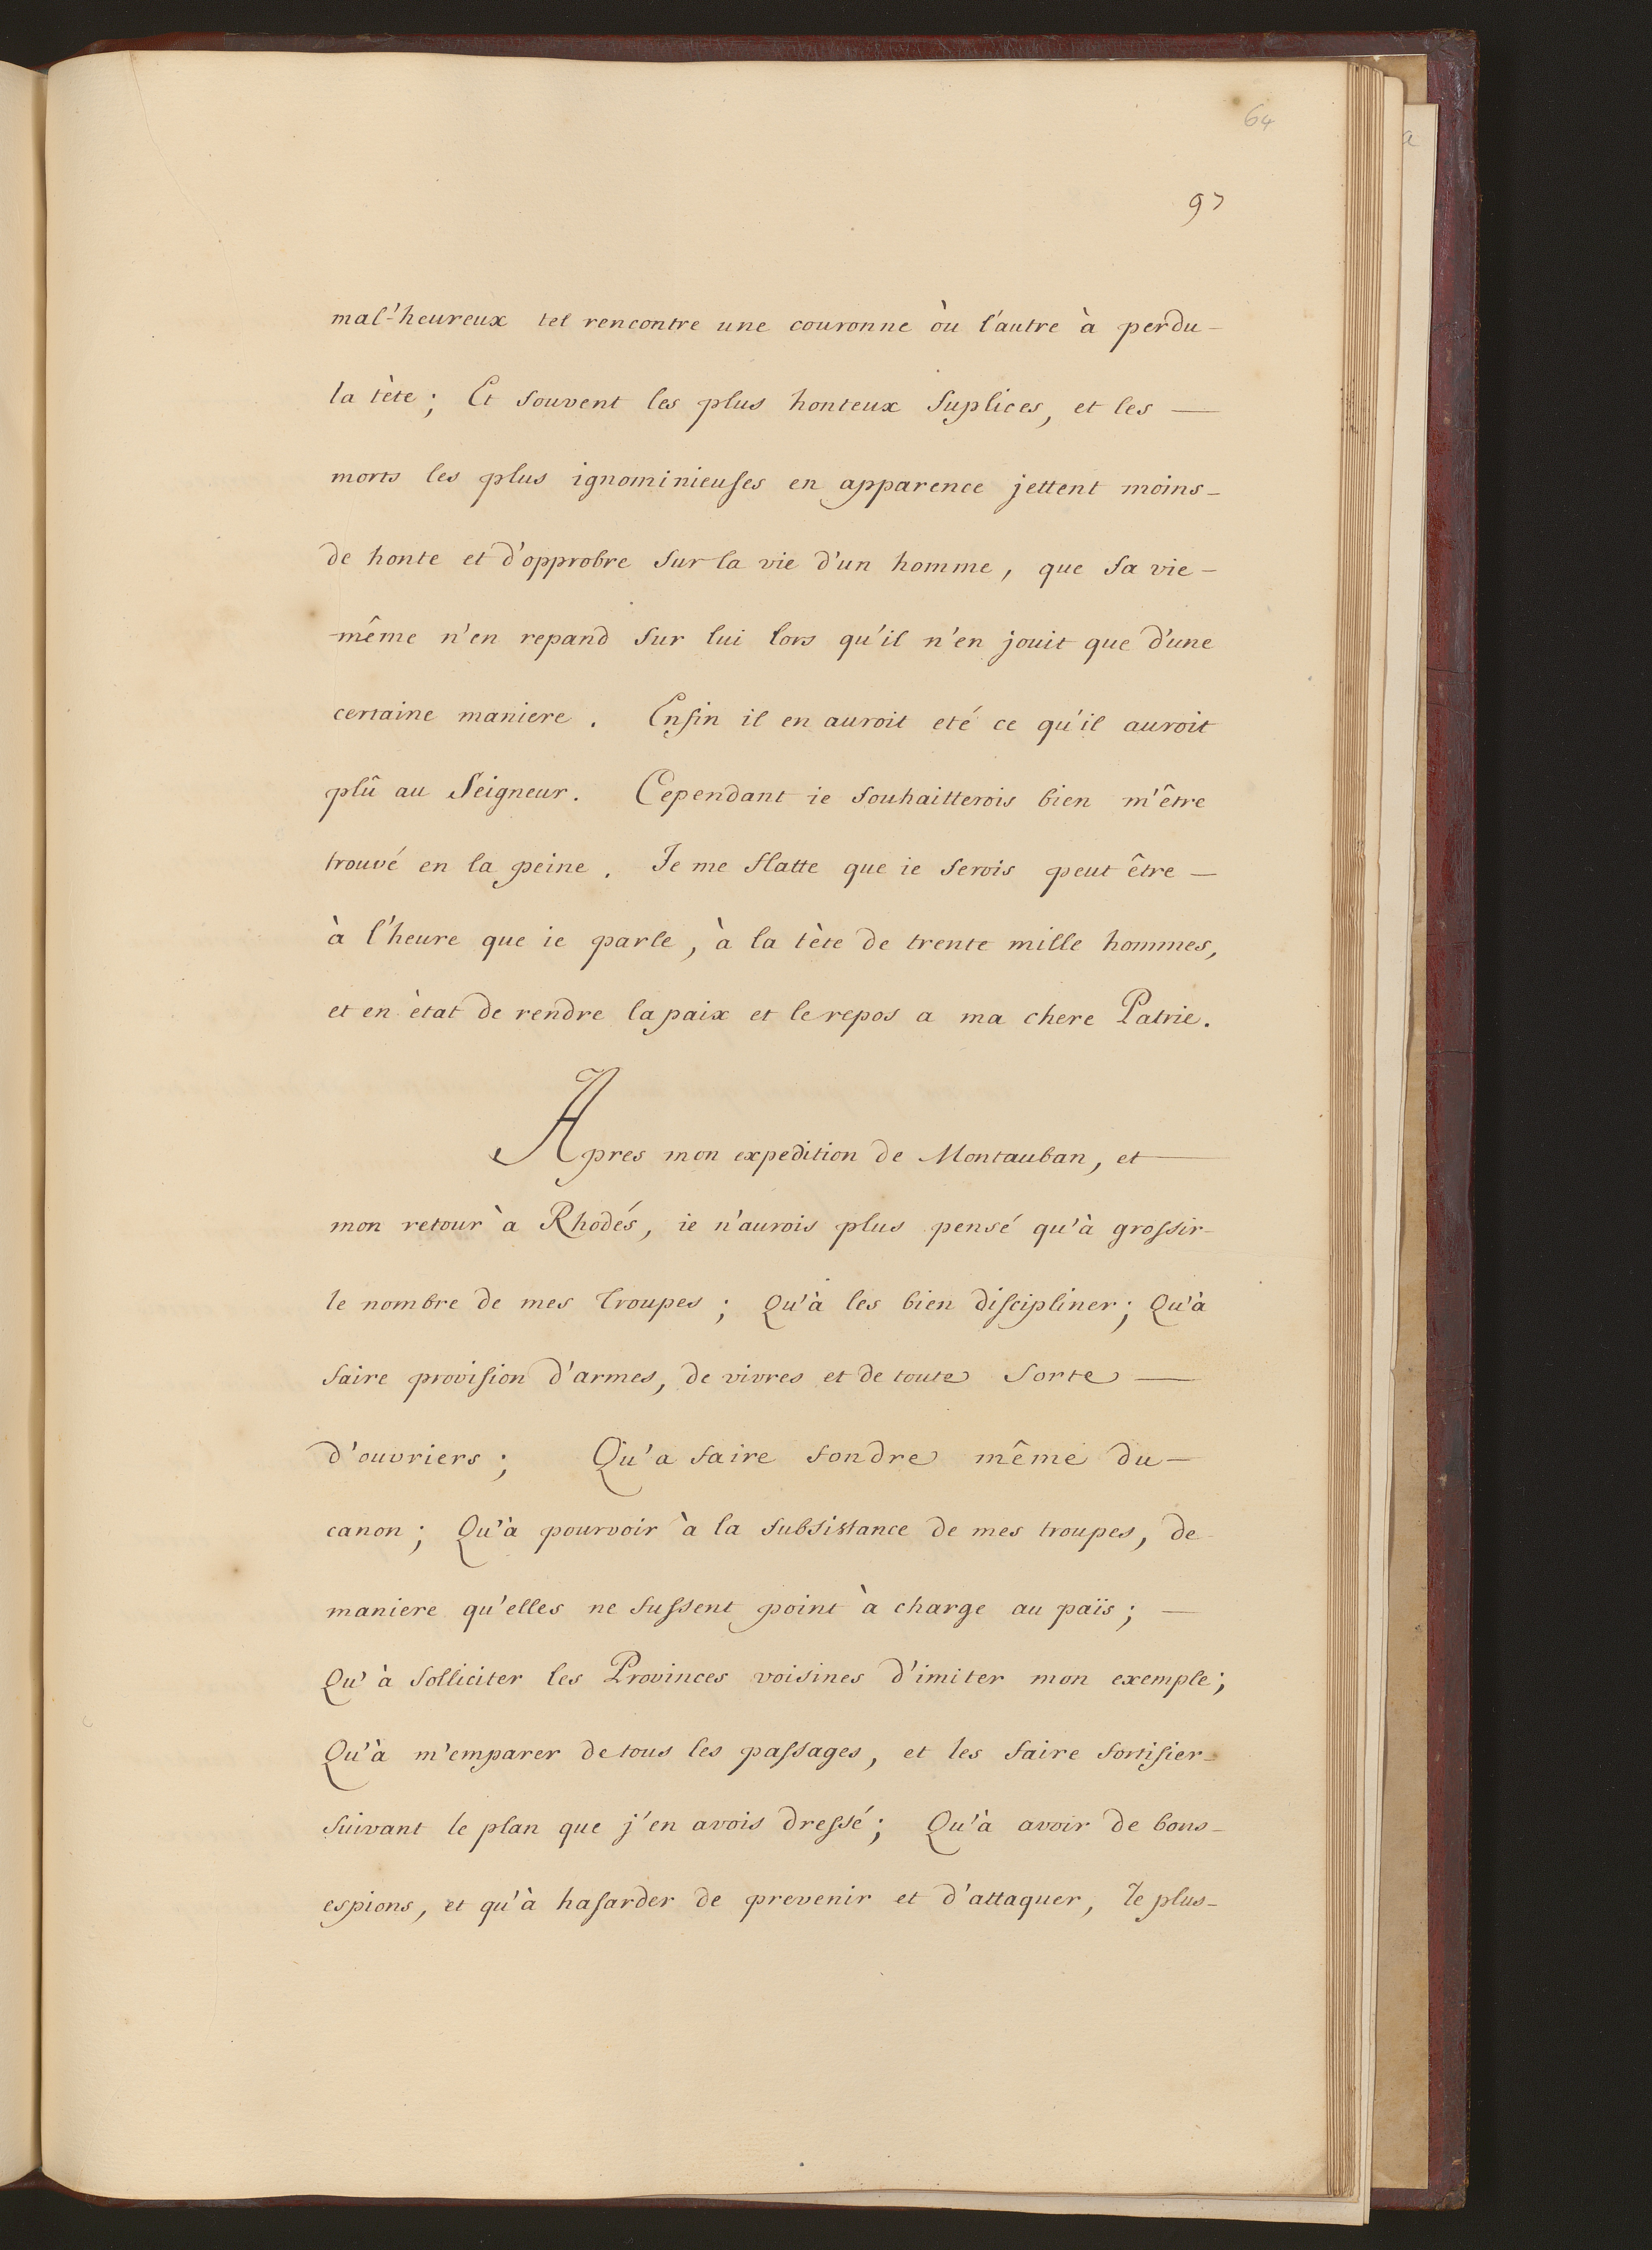 64
97
mal-'heureux tel rencontre une couronne òu l'autre à perdu-
la tète; Et souvent les plus honteux suplices, et les —
morts les plus ignominieuses en apparence jettent moins-
de honte et d'opprobre sur la vie d'un homme, que sa vie-
-même n'en repand sur lui lors qu'il n'en jouit que d'une
certaine maniere. Enfin il en auroit eté ce qu'il auroit
plû au Seigneur. Cependant ie souhaitterois bien m'être
trouvé en la peine. Je me flatte que ie serois peut être —
à l'heure que ie parle, à la tète de trente mille hommes,
et en ètat de rendre la paix et le repos a ma chere Patrie.
Apres mon expedition de Montauban, et —
mon retour à Rhodés, ie n'aurois plus pensé qu'à grossir-
le nombre de mes troupes; Qu'à les bien discipliner; Qu'à
faire provision d'armes, de vivres et de toute sorte —
d'ouvriers; Qu'a faire fondre même du —
canon; Qu'à pourvoir à la subsistance de mes troupes, de
maniere qu'elles ne fussent point à charge au païs; —
Qu'à solliciter les Provinces voisines d'imiter mon exemple;
Qu'à m'emparer de tous les passages, et les faire fortifier-
suivant le plan que j'en avois dressé; Qu'à avoir de bons-
espions, et qu'à hasarder de prevenir et d'attaquer, le plus-